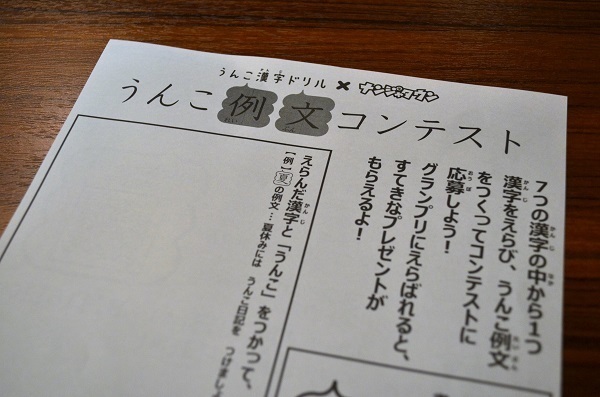 うんこ漢字ドリル×ナンジャタウン
うんこ例文コンテスト
7つの漢字の中から1つ
漢字をえらび、うんこ例文
をつくってコンテストに
応募しよう!
グランプリにえらばれると、
すてきなプレゼントが
もらえるよ!
えらんだ漢字と「うんこ」をつかって、
【例】夏の例文…夏休みには うんこ日記を つけましょ